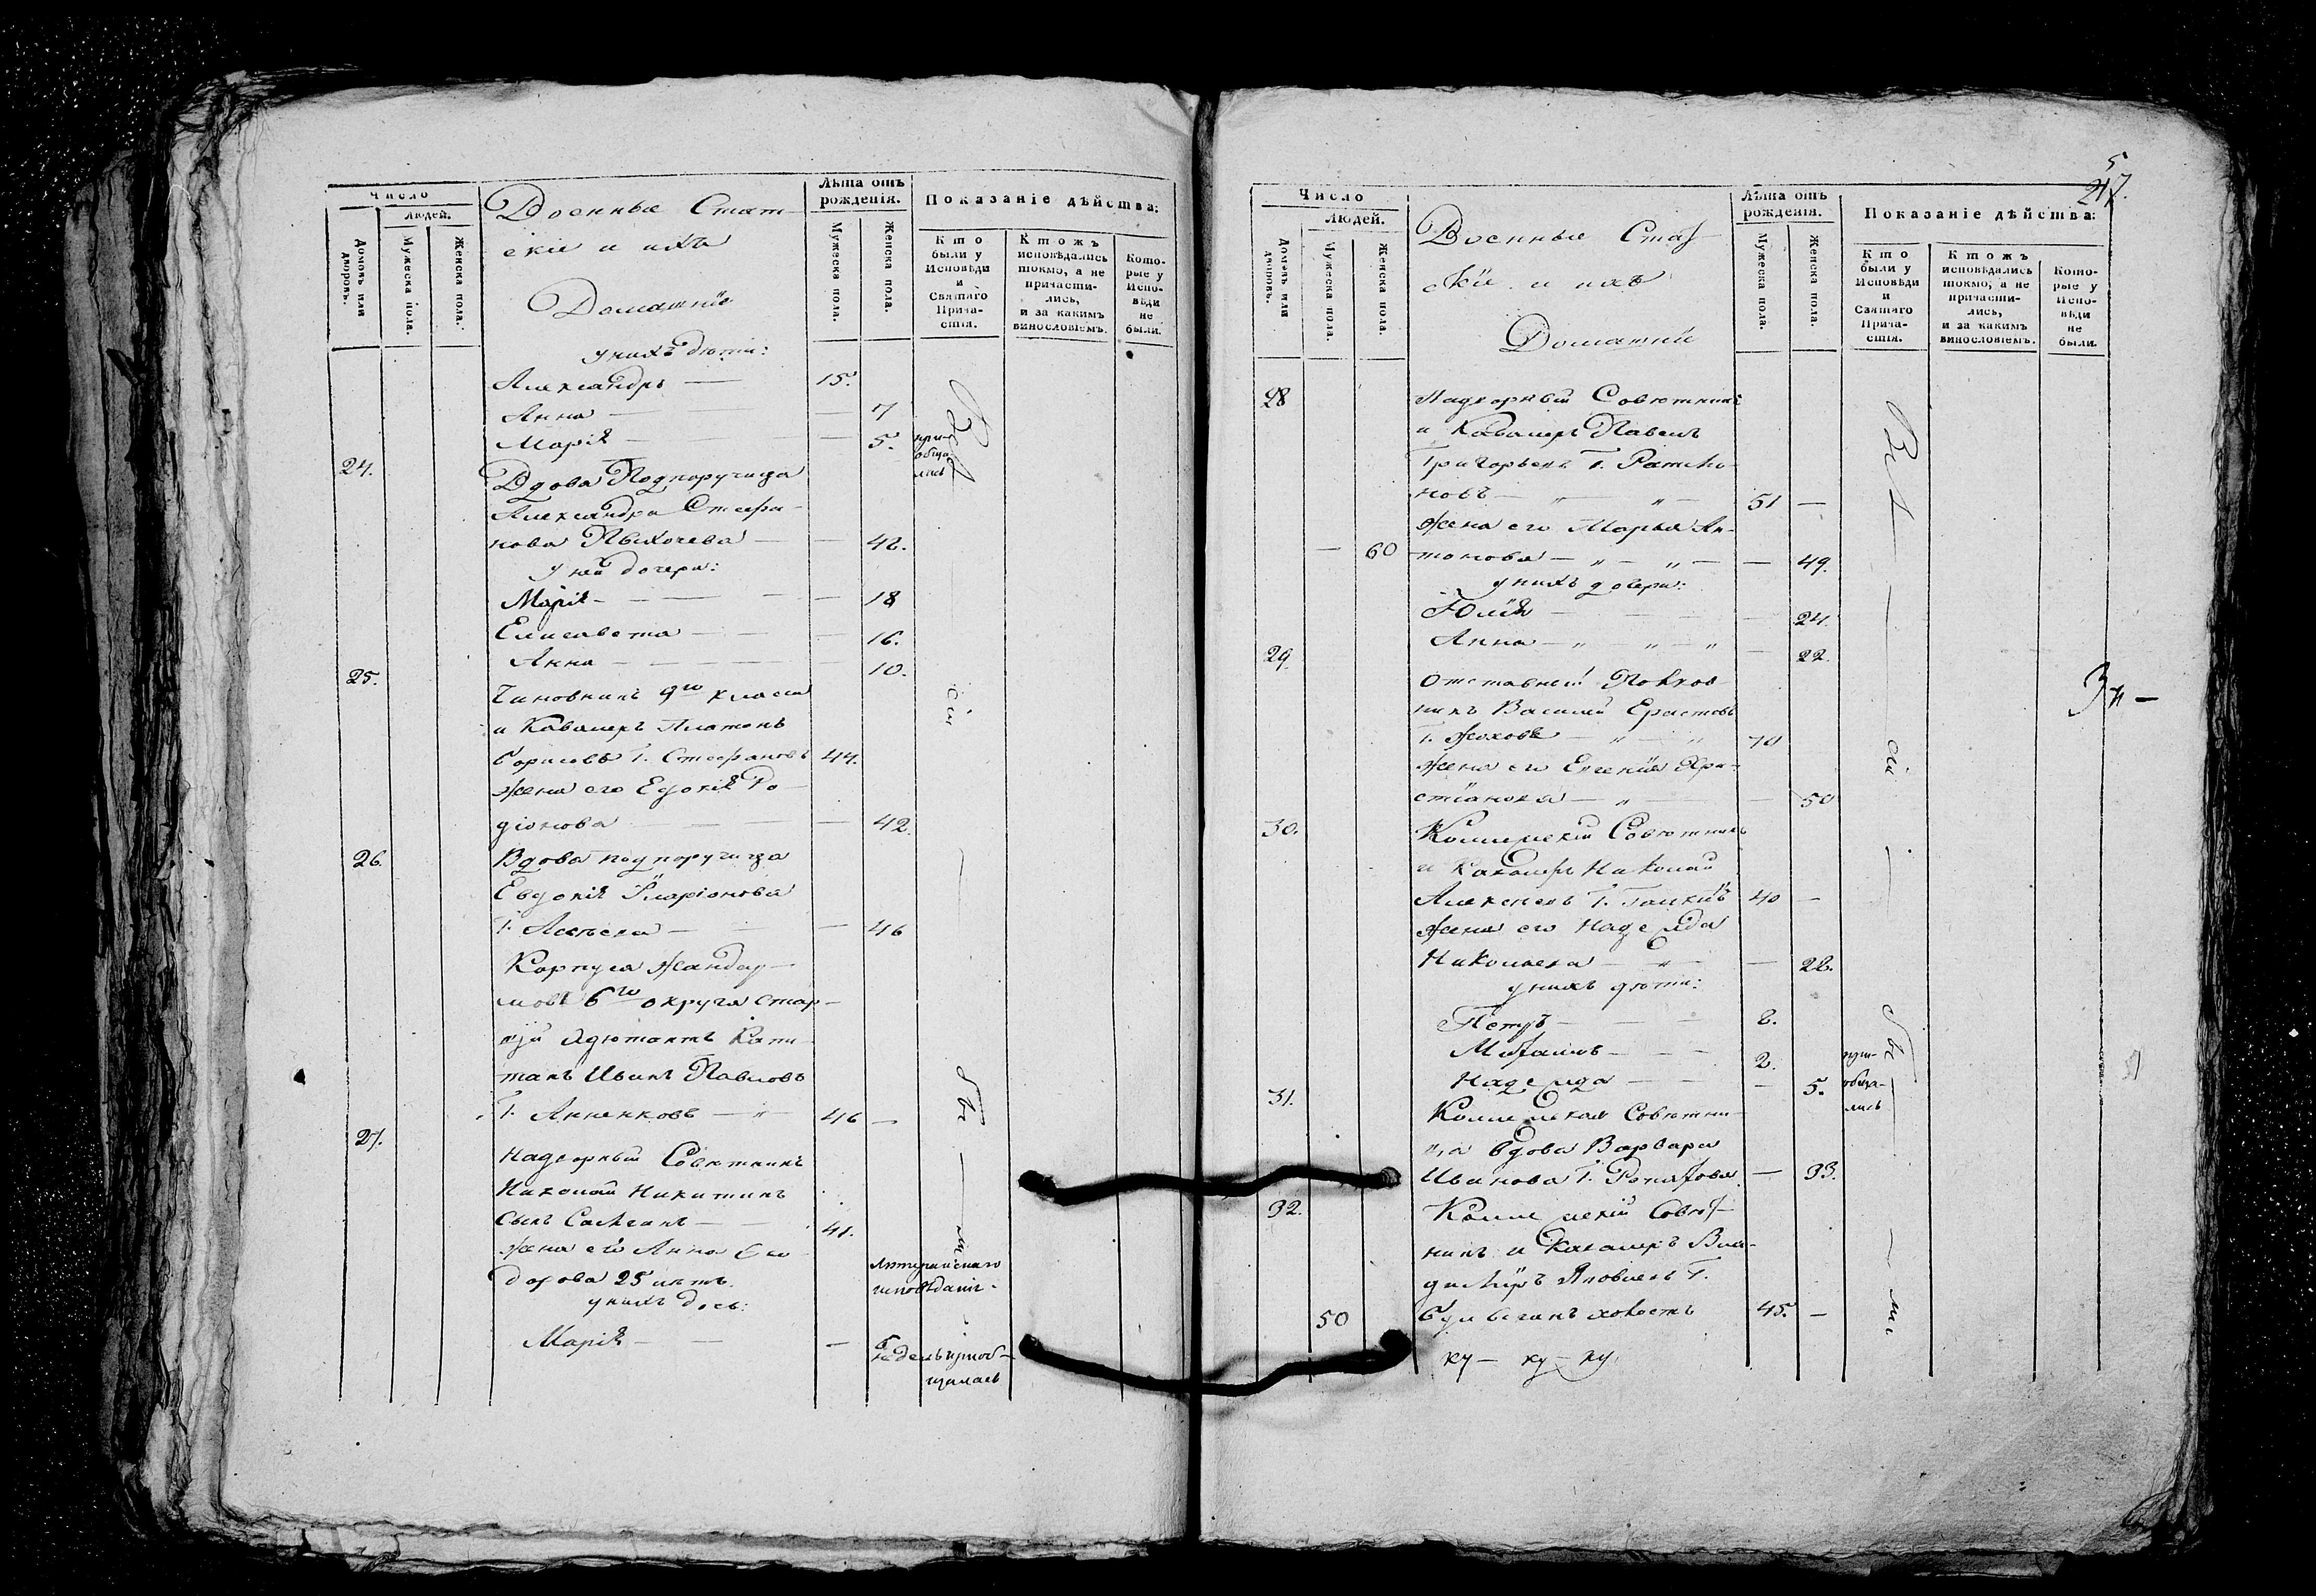 Число
Людей.
Домовъ или дворовъ.
Мужеска пола.
Женска пола.
Военные Стат-
скіе и ихъ
Домашніе
Лѣта отъ рожденія.
Мужеска пола.
Женска пола.
Показаніе дѣйства:
Кто были у Исповѣди и Святаго Прича-стія.
Ктожъ исповѣдались токмо, а не причасти-лись, и за какимъ винословіемъ.
Кото-рые у Испо-вѣди не были.
у нихъ дѣти:
Александръ — 15.
Анна — 7
Марія — 5. прі-обща-лись
24. Вдова Подпоручица
Александра Стефа-
нова — 42.
у ней дочери:
Марія — 18
Елисавета — 16.
Анна — 10.
25. Чиновникъ 9го класса
и Кавалеръ Платонъ
Борисовъ Г. Стефановъ 44.
жена его Евдокія Ро-
діонова — 42.
26. Вдова подпоручица
Евдокія Иларіонова
— 46
Корпуса Жандар-
мовъ 6го округа Стар-
шій Адютантъ Капи-
танъ Иванъ Павловъ
Г. Анненковъ — 46 —
27. Надворный Совѣтникъ
Николай Никитинъ
сынъ — 41.
жена его Анна
25 лѣтъ. Лютеранскаго исповѣданія.
у нихъ дочь:
Марія — 6 недѣль пріоб-щалась
Всѣ
сіи
бы
ли
5
217.
Число
Людей.
Домовъ или дворовъ.
Мужеска пола.
Женска пола.
Военные Стат-
скіе и ихъ
Домашніе
Лѣта отъ рожденія.
Мужеска пола.
Женска пола.
Показаніе дѣйства:
Кто были у Исповѣди и Святаго Прича-стія.
Ктожъ исповѣдались токмо, а не причасти-лись, и за какимъ винословіемъ.
Кото-рые у Испо-вѣди не были.
28 Надворный Совѣтникъ
и Кавалеръ Павелъ
Григорьевъ Г.
51 —
жена его Марья Ан-
— 60 тонова — 49.
у нихъ дочери:
Юлія — 24.
Анна — 22.
29. Отставной Полков-
никъ Василий Ерастовъ
Г. Жоховъ — 70
жена его Евгенія Хри-
стіанова — 50
30. Коллежскій Совѣтникъ
и Кавалеръ Николай
Алексѣевъ Г. 40 —
жена его Надежда
Николаева — 22.
у нихъ дѣти:
Петръ — 8.
Михаилъ — 2.
Надежда — 5. прі-обща-лись
31. Коллежская Совѣтни-
ца вдова Варвара
Иванова Г. — 33.
32. Коллежскій Совѣт-
никъ и Кавалеръ Вла-
диміръ Яковлевъ Г.
50 холостъ 45. —
Всѣ
сіи
бы
ли